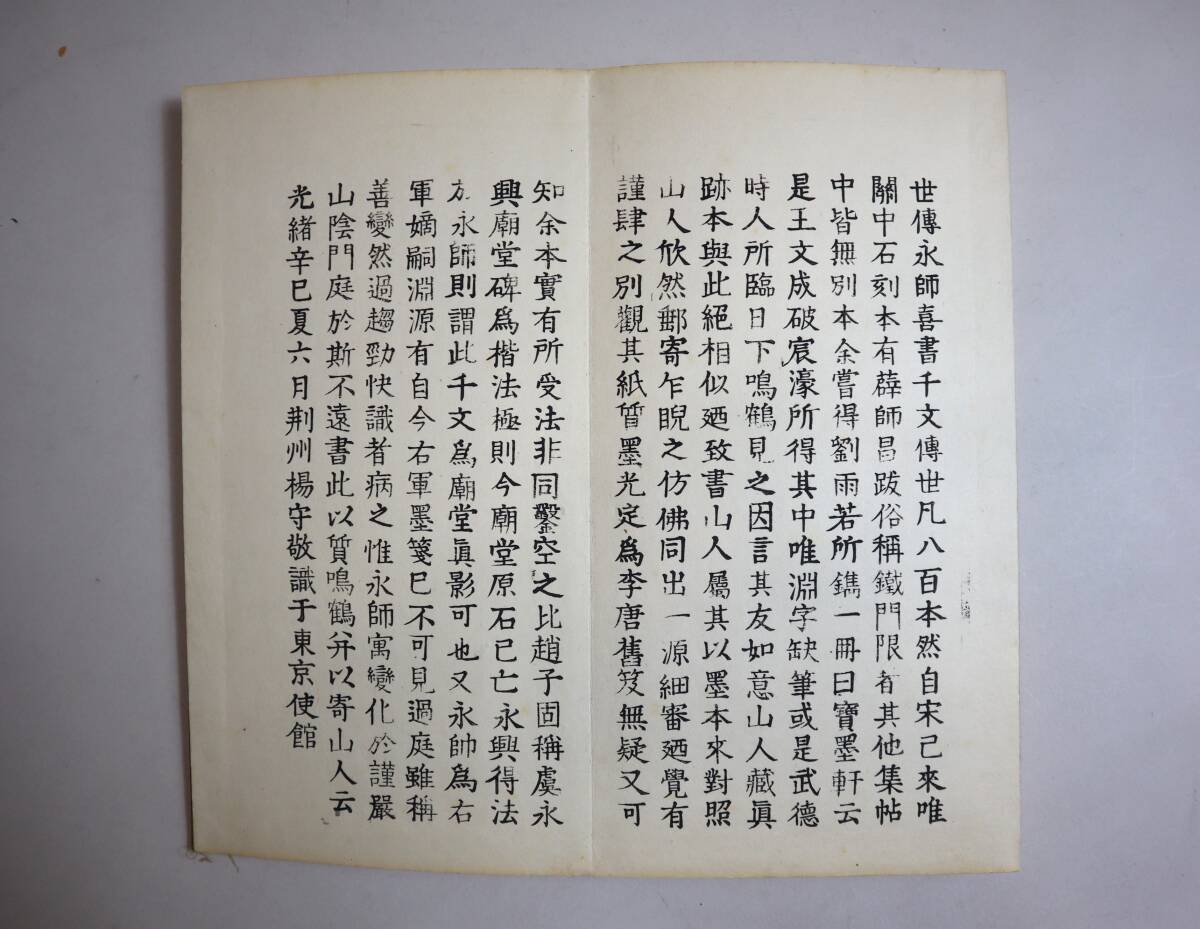 世傳永師喜書千文傳世凡八百本然自宋已來唯
關中石刻本有薛師昌跋俗稱鐵門限者其他集帖
中皆無別本余嘗得劉雨若所鐫一冊曰寶墨軒云
是王文成破宸濠所得其中唯淵字缺筆或是武德
時人所臨日下鳴鶴見之因言其友如意山人藏眞
跡本與此絕相似廼致書山人屬其以墨本來對照
山人欣然郵寄乍睨之仿佛同出一源細審廼覺有
謹肆之別觀其紙質墨光定爲李唐舊笈無疑又可
知余本實有所受法非同鑿空之比趙子固稱虞永
興廟堂碑爲楷法極則今廟堂原石已亡永興得法
於永師則謂此千文爲廟堂眞影可也又永師爲右
軍嫡嗣淵源有自今右軍墨箋已不可見過庭雖稱
善變然過趨勁快識者病之惟永師寓變化於謹嚴
山陰門庭於斯不遠書此以質鳴鶴幷以寄山人云
光緒辛巳夏六月荆州楊守敬識于東京使館